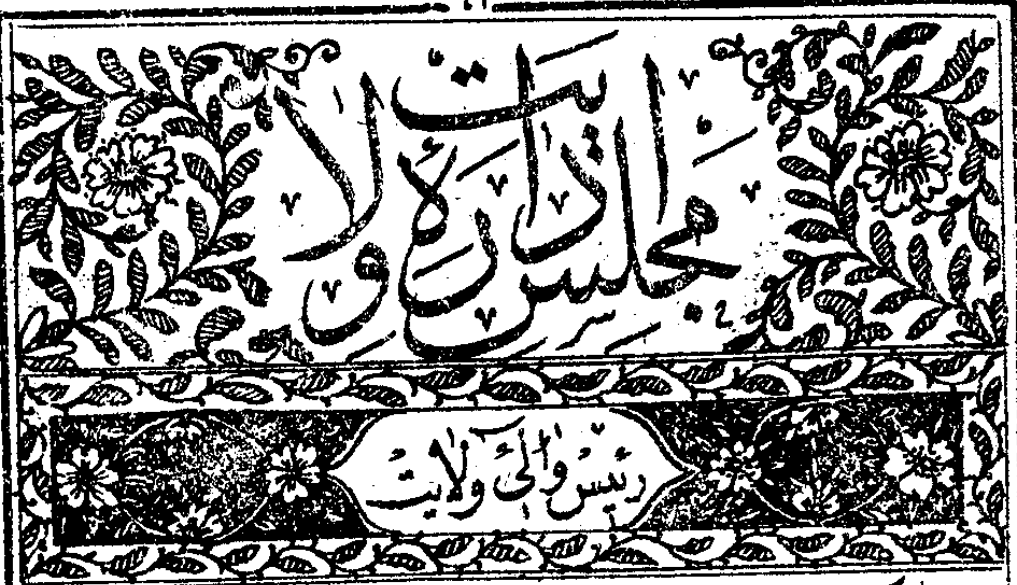 مجلس ادارهٔ ولایت
رئیس والئ ولایت